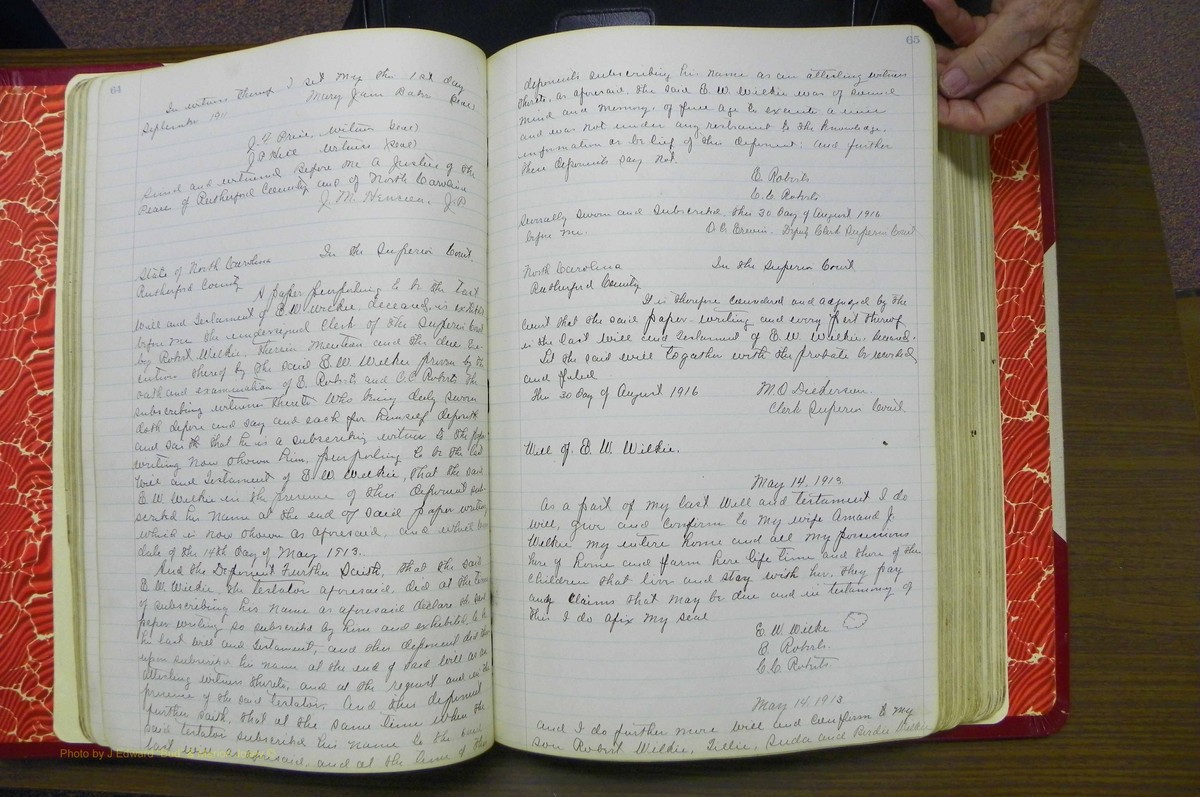 64
In witness thereof I set my this 1st day
September 1911 Mary Jane Baber Seal
J. F. Price, witness (seal)
J A Price witness (seal)
Signed and witnessed before me a Justice of the
Peace of Rutherford County and of North Carolina
J. M. Hensley J.P.
State of North Carolina In the Superior Court
Rutherford County
A paper purporting to be the last
will and Testament of E. W. Wilkie, deceased, is exhibited
before me the undersigned Clerk of the Superior Court
by Robert Wilkie, therein mention and the due Exe-
cution thereof by the said E. W Wilkie proven by the
oath and examination of B. Roberts and C. C. Roberts the
subscribing witness thereto. Who being duly sworn
doth depose and say and each for himself deposeth
and saith that he is a subscribing witness to the paper
writing now shown him, purporting to be the last
will and Testament of E W Wilkie, that the said
E. W. Wilkie in the presence of this deponent sub-
scribed his name at the end of said paper writing
which is now shown as aforesaid, and which bears
date of the 14th day of May 1913.
And the Deponent Further Saith, that the said
E. W. Wilkie, the testator aforesaid, did at the time
of subscribing his name as aforesaid declare the said
paper writing so subscribed by him and exhibited, to be
his last will and testament, and this deponent did there-
upon subscribe his name at the end of said will as an
attesting witness thereto, and at the request and in the
presence of the said testator. And this deponent
further saith, that at the same time when the
said testator subscribed his name to the said
last will as aforesaid, and at the time of the
65
deponents subscribing his name as an attesting witness
thereto, as aforesaid, the said E. W. Wilkie was of sound
mind and memory, of full age to execute a will
and was not under any restraint to the knowledge,
information or belief of this deponent: and further
these deponents say not.
B. Roberts
C. C. Roberts
Severally sworn and subscribed, this 30 day of August 1916
before me. O. C. Erwin. Deputy Clerk Superior Court
North Carolina In the Superior Court
Rutherford County
It is therefore considered and adjudged by the
Court that the said paper-writing and every part thereof
is the last will and testament of E. W. Wilkie deceased.
Let the said will together with the probate be recorded
and filed
This 30 Day of August 1916 M. O. Dickerson
Clerk Superior Court.
Will of E. W. Wilkie.
May 14. 1913
As a part of my last Will and testament I do
will, give and confirm to my wife Amand J.
Wilkie my entire home and all my possessions
here of home and farm here life time and there of the
children that live and stay with her, they pay
any claims that may be due and in testimony of
this I do afix my seal
E. W. Wilkie
B. Roberts.
C. C. Roberts.
May 14, 1913
And I do further more will and confirm to my
son Robert Wilkie, Tillie, Suda and Birdie Wilkie
Photo by J Edward